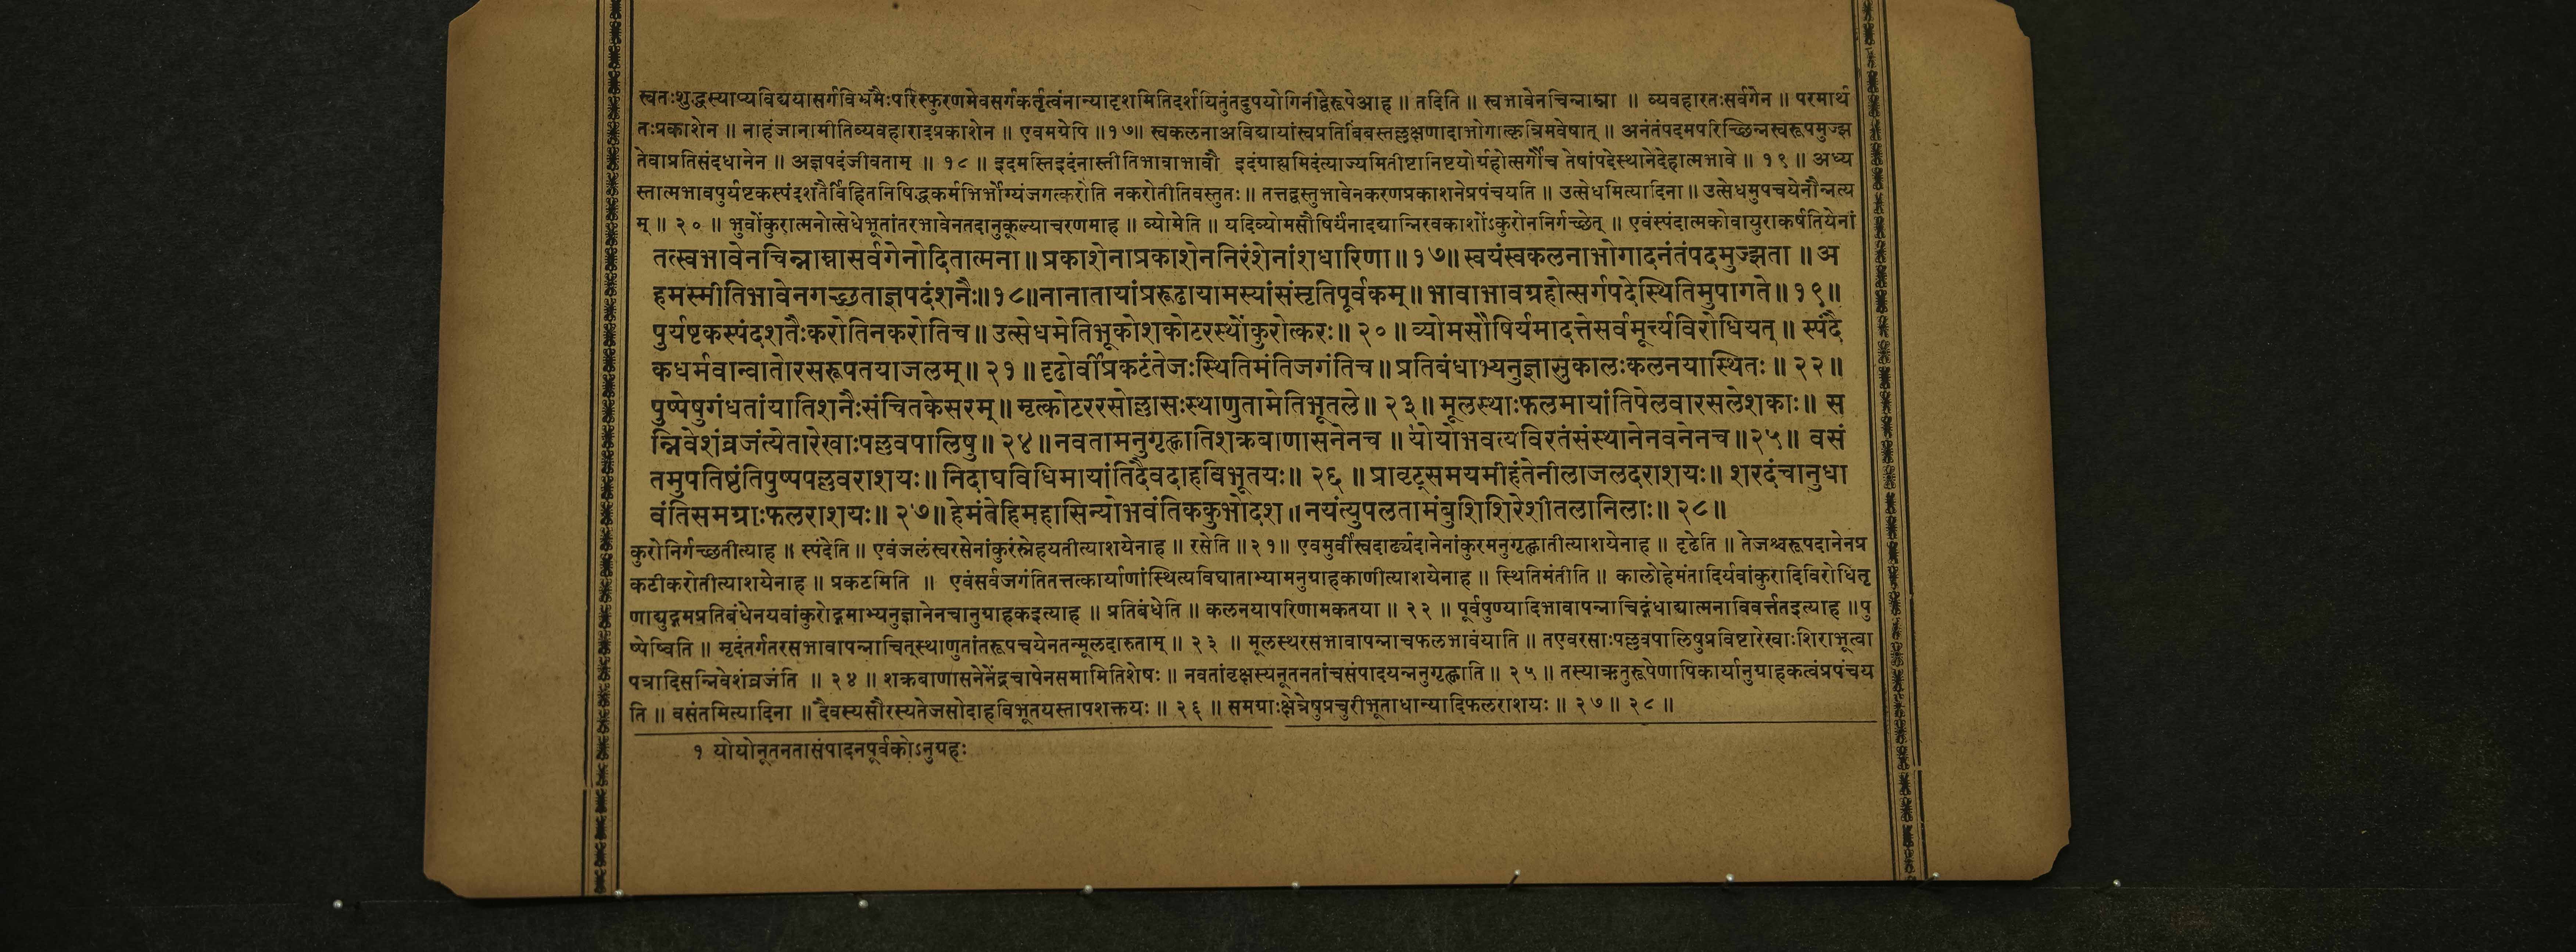 स्वतःशुद्धस्याप्यविद्ययासर्गविभ्रमैःपरिस्फुरणमेवसर्गकर्तृत्वंनान्यादृशमितिदर्शयितुंतदुपयोगिनीद्वेरूपेआह ॥ तदिति ॥ स्वभावेनचिन्नाम्ना ॥ व्यवहारतःसर्वगेन ॥ परमार्थ
तःप्रकाशेन ॥ नाहंजानामीतिव्यवहारादप्रकाशेन ॥ एवमग्रेपि ॥१७॥ स्वकलनाअविद्यायांस्वप्रतिबिंबस्तल्लक्षणादाभोगात्कृत्रिमवेषात् ॥ अनंतंपदमपरिच्छिन्नस्वरूपमुज्झ
तेवाप्रतिसंदधानेन ॥ अज्ञपदंजीवताम् ॥ १८ ॥ इदमस्तिइदंनास्तीतिभावाभावौ इदंग्राह्यमिदंत्याज्यमितीष्टानिष्टयोर्ग्रहोत्सर्गौच तेषांपदेस्थानेदेहात्मभावे ॥ १९ ॥ अध्य
स्तात्मभावपुर्यष्टकस्पंदशतैर्विहितनिषिद्धकर्मभिर्भोग्यंजगत्करोति नकरोतीतिवस्तुतः ॥ तत्तद्वस्तुभावेनकरणप्रकाशनेप्रपंचयति ॥ उत्सेधमित्यादिना ॥ उत्सेधमुपचयेनौन्नत्य
म् ॥ २० ॥ भुवोंकुरात्मनोत्सेधेभूतांतरभावेनतदानुकूल्याचरणमाह ॥ व्योमेति ॥ यदिव्योमसौषिर्यंनादद्यान्निरवकाशोंऽकुरोननिर्गच्छेत् ॥ एवंस्पंदात्मकोवायुराकर्षतियेनां
तत्स्वभावेनचिन्नाम्नासर्वगेनोदितात्मना ॥ प्रकाशेनाप्रकाशेननिरंशेनांशधारिणा ॥ १७॥ स्वयंस्वकलनाभोगादनंतंपदमुज्झता ॥ अ
हमस्मीतिभावेनगच्छताज्ञपदंशनैः॥१८॥नानातायांप्ररूढायामस्यांसंसृतिपूर्वकम् ॥ भावाभावग्रहोत्सर्गपदेस्थितिमुपागते ॥ १९॥
पुर्यष्टकस्पंदशतैःकरोतिनकरोतिच ॥ उत्सेधमेतिभूकोशकोटरस्थोंकुरोत्करः॥ २० ॥ व्योमसौषिर्यमादत्तेसर्वमूर्त्त्यविरोधियत् ॥ स्पंदै
कधर्मवान्वातोरसरूपतयाजलम् ॥ २१ ॥ दृढोर्वीप्रकटंतेजःस्थितिमंतिजगंतिच ॥ प्रतिबंधाभ्यनुज्ञासुकालःकलनयास्थितः ॥ २२ ॥
पुष्पेषुगंधतांयातिशनैःसंचितकेसरम् ॥ मृत्कोटररसोल्लासःस्थाणुतामेतिभूतले ॥ २३ ॥ मूलस्थाःफलमायांतिपेलवारसलेशकाः ॥ स
न्निवेशंव्रजंत्येतारेखाःपल्लवपालिषु ॥ २४ ॥ नवतामनुगृह्णातिशक्रबाणासनेनच ॥ योयोभवत्यविरतंसंस्थानेनवनेनच ॥२५॥ वसं
तमुपतिष्ठंतिपुष्पपल्लवराशयः॥ निदाघविधिमायांतिदैवदाहविभूतयः॥ २६ ॥ प्रावृट्समयमीहंतेनीलाजलदराशयः॥ शरदंचानुधा
वंतिसमग्राःफलराशयः॥ २७॥ हेमंतेहिमहासिन्योभवंतिककुभोदश ॥ नयंत्युपलतामंबुशिशिरेशीतलानिलाः॥ २८॥
कुरोनिर्गच्छतीत्याह ॥ स्पंदेति ॥ एवंजलंस्वरसेनांकुरंस्नेहयतीत्याशयेनाह ॥ रसेति ॥२१॥ एवमुर्वीस्वदार्ढ्यदानेनांकुरमनुगृह्णातीत्याशयेनाह ॥ दृढेति ॥ तेजश्चरूपदानेनप्र
कटीकरोतीत्याशयेनाह ॥ प्रकटमिति ॥ एवंसर्वजगंतितत्तत्कार्याणांस्थित्यविघाताभ्यामनुग्राहकाणीत्याशयेनाह ॥ स्थितिमंतीति ॥ कालोहेमंतादिर्यवांकुरादिविरोधितृ
णाद्युद्गमप्रतिबंधेनयवांकुरोद्गमाभ्यनुज्ञानेनचानुग्राहकइत्याह ॥ प्रतिबंधेति ॥ कलनयापरिणामकतया ॥ २२ ॥ पूर्वपुण्यादिभावापन्नाचिद्गंधाद्यात्मनाविवर्त्ततइत्याह ॥पु
ष्पेष्विति ॥ मृदंतर्गतरसभावापन्नाचित्स्थाणुतांतरूपचयेनतन्मूलदारुताम् ॥ २३ ॥ मूलस्थरसभावापन्नाचफलभावंयाति ॥ तएवरसाःपल्लवपालिषुप्रविष्टारेखाःशिराभूत्वा
पत्रादिसन्निवेशंव्रजंति ॥ २४ ॥ शक्रबाणासनेनेंद्रचापेनसमामितिशेषः ॥ नवतांवृक्षस्यनूतनतांचसंपादयन्ननुगृह्णाति ॥ २५ ॥ तस्याऋतुरूपेणापिकार्यानुग्राहकत्वंप्रपंचय
ति ॥ वसंतमित्यादिना ॥ दैवस्यसौरस्यतेजसोदाहविभूतयस्तापशक्तयः ॥ २६ ॥ समग्राःक्षेत्रेषुप्रचुरीभूताधान्यादिफलराशयः ॥ २७ ॥ २८ ॥
१ योयोनूतनतासंपादनपूर्वकोऽनुग्रहः